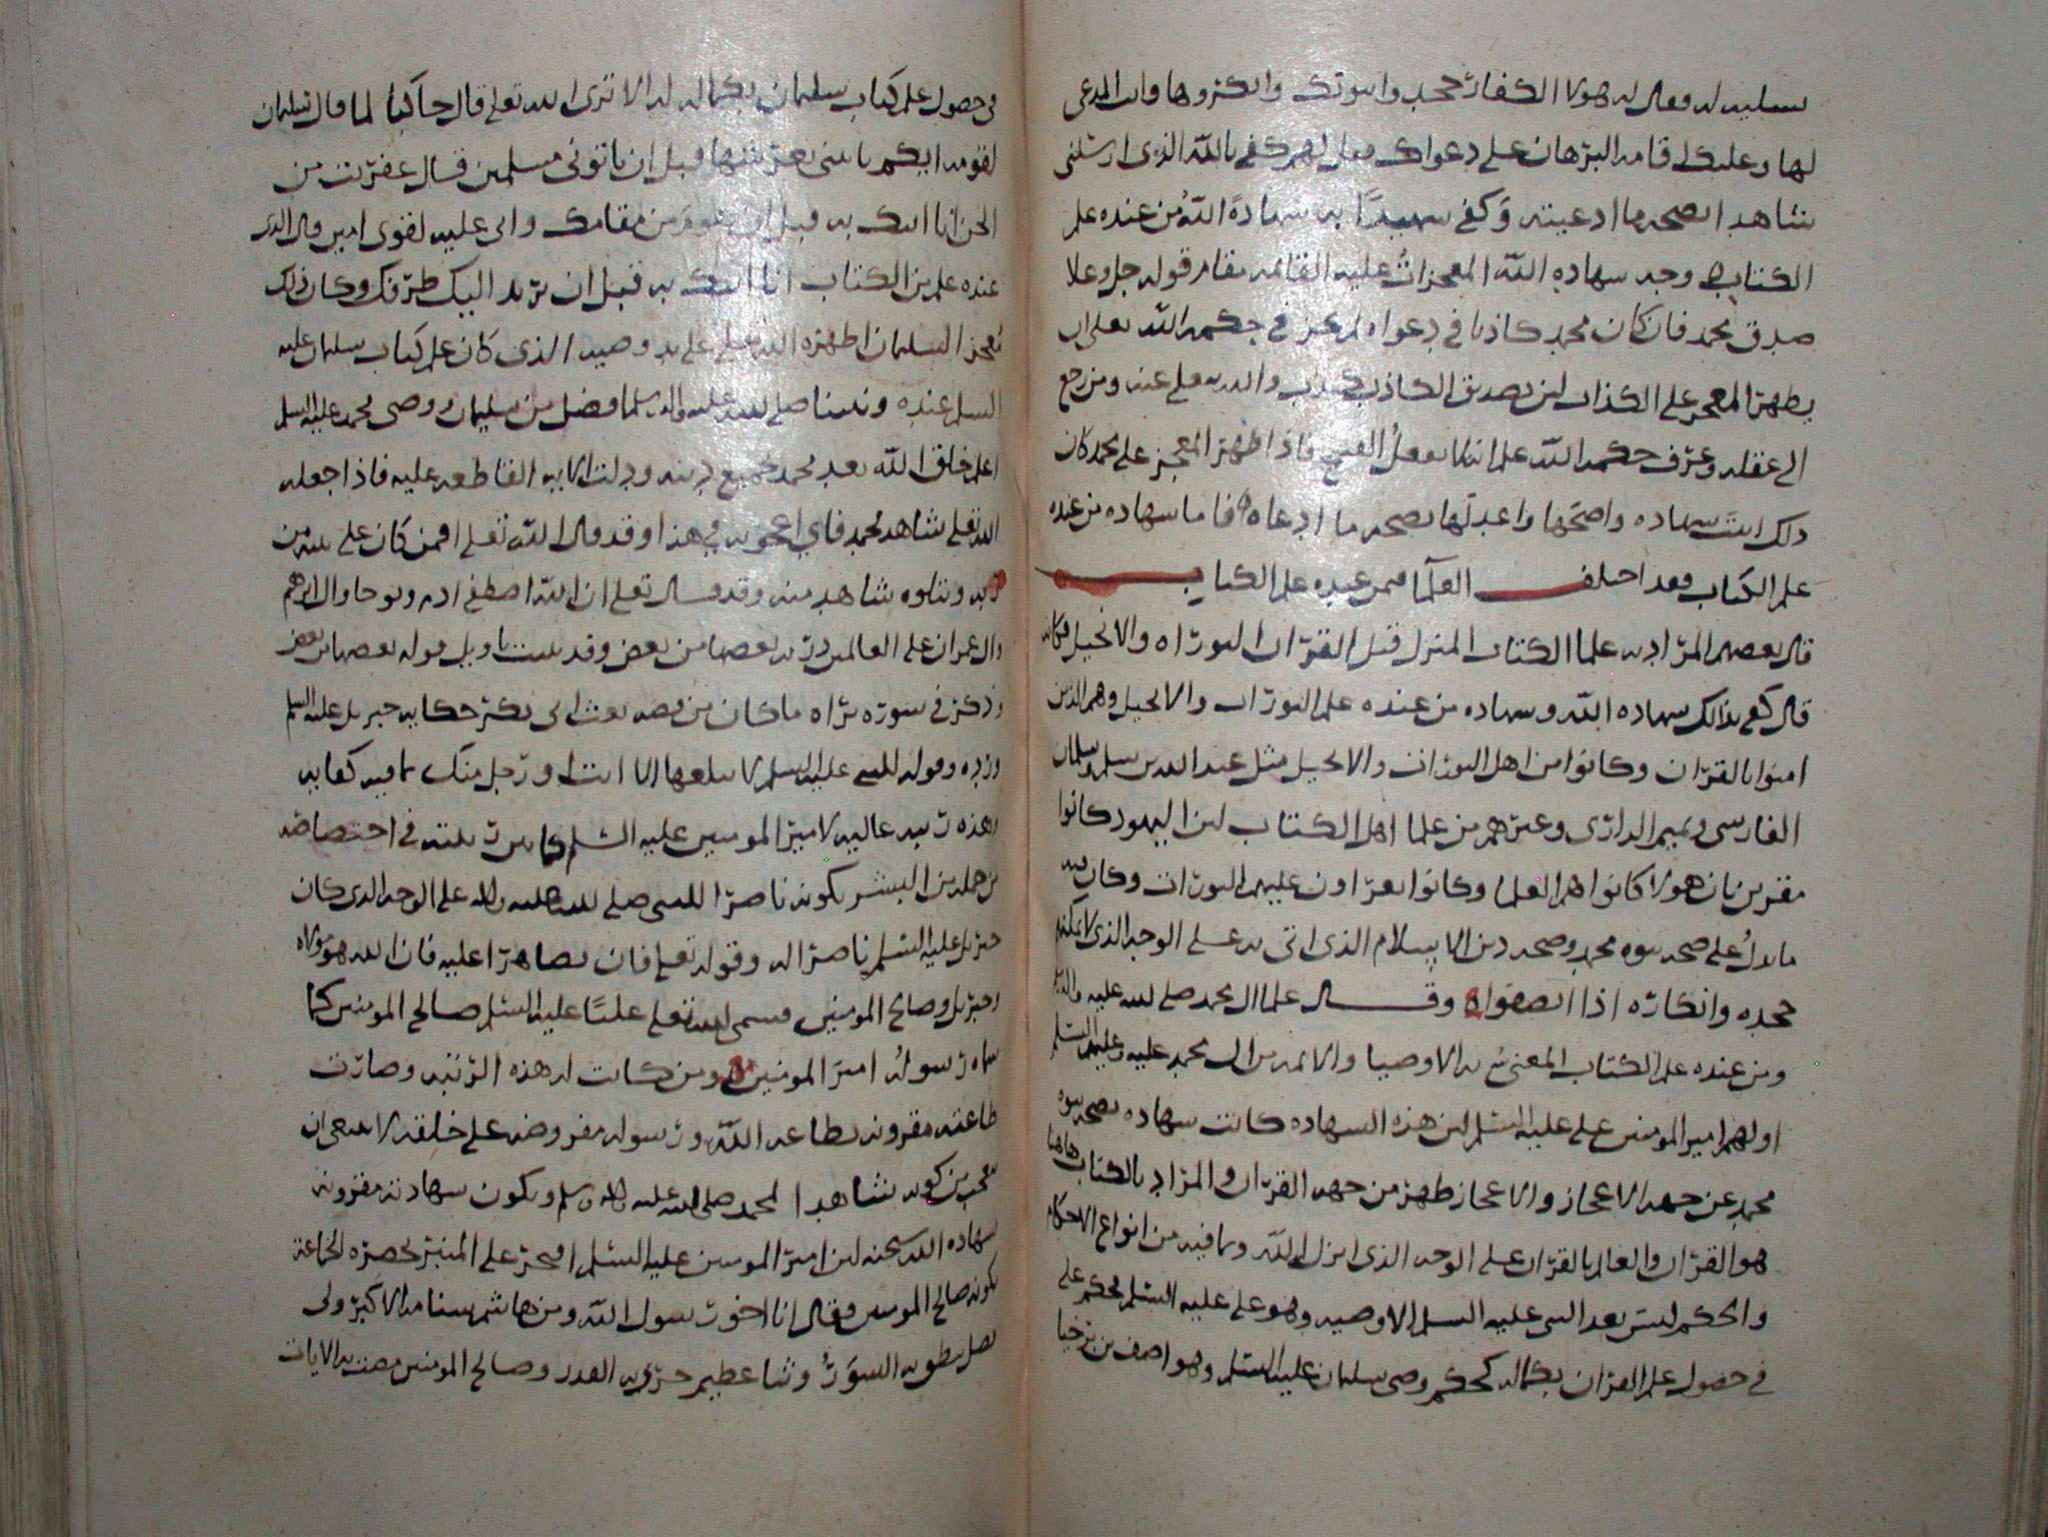 تسليه له فقال له هولا الكفار جحدوا نبوتك وانكروها وانت المدعي
لها وعليك اقامه البرهان على دعواك فقل لهم كفى بالله الذي ارسلني
شاهدا بصحه ما ادعيته وكفى شهيدا به شهادة الله ومن عنده علم
الكتاب وجه شهاده الله المعجزات عليه القائمه مقام قوله جل وعلا
صدق محمد فان كان محمد كاذبا في دعواه لم يجز في حكمه الله تعالى ان
يظهر المعجز على الكذاب لان تصديق الكاذب كذب والله يتعالى عنه ومن رجع
الى عقله وعرف حكمه الله علم انه لا يفعل القبيح فاذا اظهر المعجز على محمد كان
ذلك اثبت شهاده واصحها واعدلها بصحه ما ادعاه فاما شهاده من عنده
علم الكتاب فقد اختلف العلما فيمن عنده علم الكتاب
قال بعضهم المراد به علما الكتاب المنزل قبل القران التوراه والانجيل فكانه
قال كفى بذلك شهاده الله وشهاده من عنده علم التورات والانجيل وهم الذين
امنوا بالقران وكانوا من اهل التورات والانجيل مثل عبد الله بن سلم وسلمان
الفارسي وتميم الداري وغيرهم من علما اهل الكتاب لان اليهود كانوا
مقرين بان هولا كانوا هم العلما وكانوا يقراون عليهم التورات وكان فيه
ما يدل على صحه نبوه محمد وصحه دين الاسلام الذي اتى به على الوجه الذي لا يمكنهم
جحده وانكاره اذا انصفوا وقال علما ال محمد صلى الله عليه واله
ومن عنده علم الكتاب المعني به الاوصيا والائمه من ال محمد عليه وعليهم السلم
اولهم امير المومنين علي عليه السلم لان هذه الشهاده كانت شهاده بصحه نبوه
محمد من جهه الاعجاز والاعجاز ظهر من جهه القران والمراد بالكتاب هاهنا
هو القران والعالم بالقران على الوجه الذي انزل الله وما فيه من انواع الاحكام
والحكم ليس بعد النبي عليه السلم الا وصيه وهو علي عليه السلم فحكم علي
في حصول علم القران بكماله كحكم وصي سليمان عليه السلم وهو اصف بن برخيا
في حصول علم كتاب سليمان بكماله له الا ترى الله تعلى قال حاكيا لما قال سليمان
لقومه ايكم ياتيني بعرشها قبل ان ياتوني مسلمين قال عفريت من
الجن انا اتيك به قبل ان تقوم من مقامك واني عليه لقوي امين قال الذي
عنده علم من الكتاب انا اتيك به قبل ان يرتد اليك طرفك وكان ذلك
معجزا لسليمان اظهره الله تعلى على يد وصيه الذي كان علم كتاب سليمان عليه
السلم عنده ونبينا صلى الله عليه واله وسلم افضل من سليمان ووصي محمد عليه السلم
اعلم خلق الله بعد محمد بجميع دينه ودلت الايه القاطعه عليه فاذا جعله
الله تعلى شاهد محمد فاي اعجوبه في هذا وقد قال الله تعلى افمن كان على بينه من
ربه ويتلوه شاهد منه وقد قال تعلى ان الله اصطفى ادم ونوحا وال ابرهيم
وال عمران على العالمين ذريه بعضها من بعض وقد بينت تاويل قوله بعضها من بعض
وذكر في سوره براه ما كان من قصه بعث ابي بكر حكايه جبريل عليه السلم
ورده وقوله للنبي عليه السلم لا يبلغها الا انت او رجل منك ما فيه كفايه
وهذه رتبه عاليه لامير المومنين عليه السلم كما بين رتبته في اختصاصه
من جمله من البشر بكونه ناصرا للنبي صلى الله عليه واله على الوجه الذي كان
جبريل عليه السلم ناصرا له وقوله تعلى فان تظاهرا عليه فان الله هو مولاه
وجبريل وصالح المومنين فسمى الله تعلى عليا عليه السلم صالح المومنين كما
سماه رسوله امير المومنين ومن كانت له هذه الرتبه وصارت
طاعته مقرونه بطاعه الله ورسوله مفروضه على خلقه لا ينبغي ان
تعجب من كونه شاهدا لمحمد صلى الله عليه واله وسلم وتكون شهادته مقرونه
بشهاده الله سبحنه لان امير المومنين عليه السلم افتخر على المنبر بحضره الجماعة
بكونه صالح المومنين فقال انا اخو رسول الله ومن هاشم سنامه الاكبر ولي
وصالح المومنين الايات